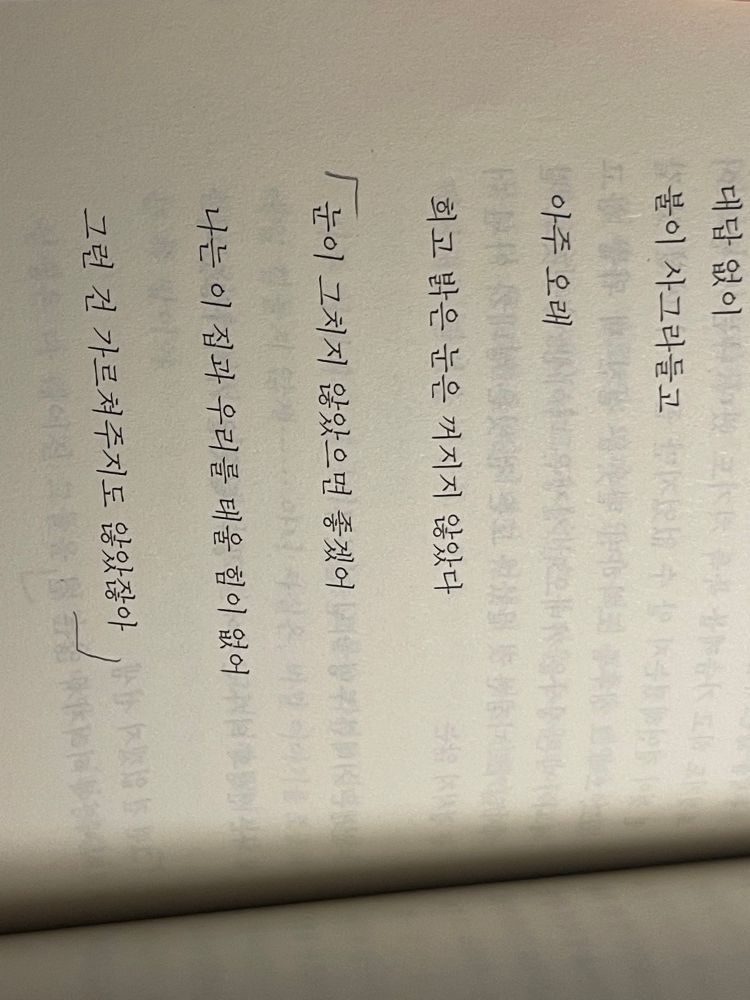 대답 없이
불이 사그라들고
아주 오래
희고 밝은 눈은 꺼지지 않았다
눈이 그치지 않았으면 좋겠어
나는 이 집과 우리를 태울 힘이 없어
그런 건 가르쳐주지도 않았잖아